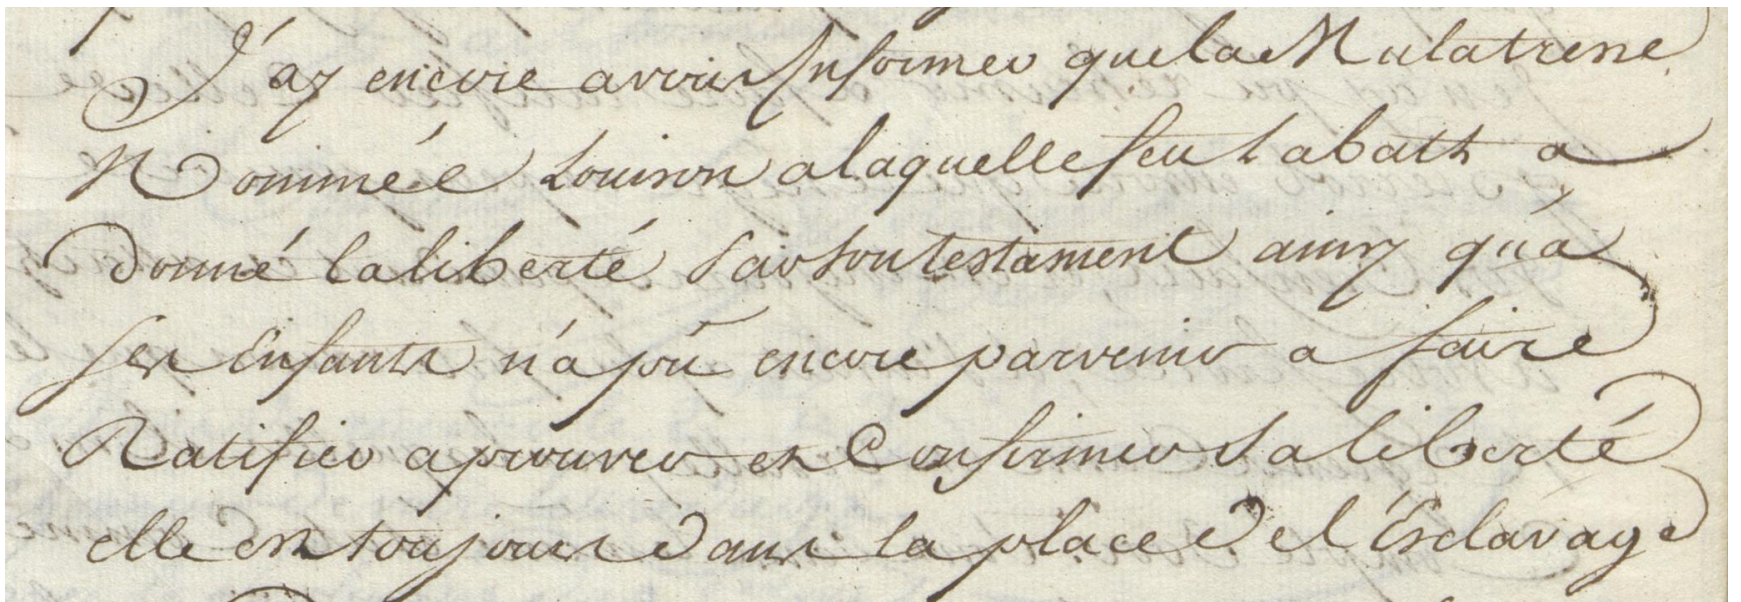 J'ay encore avous Informer que la Mulatresse
Nommée Louison a laquelle feu Labath a
donné la liberté par son testament ainsy qu'á
ses Enfants n'a pû encore parvenir a faire
Ratifier aprouver et Confirmer sa liberté
elle est toujours dans la place de l'Esclávage